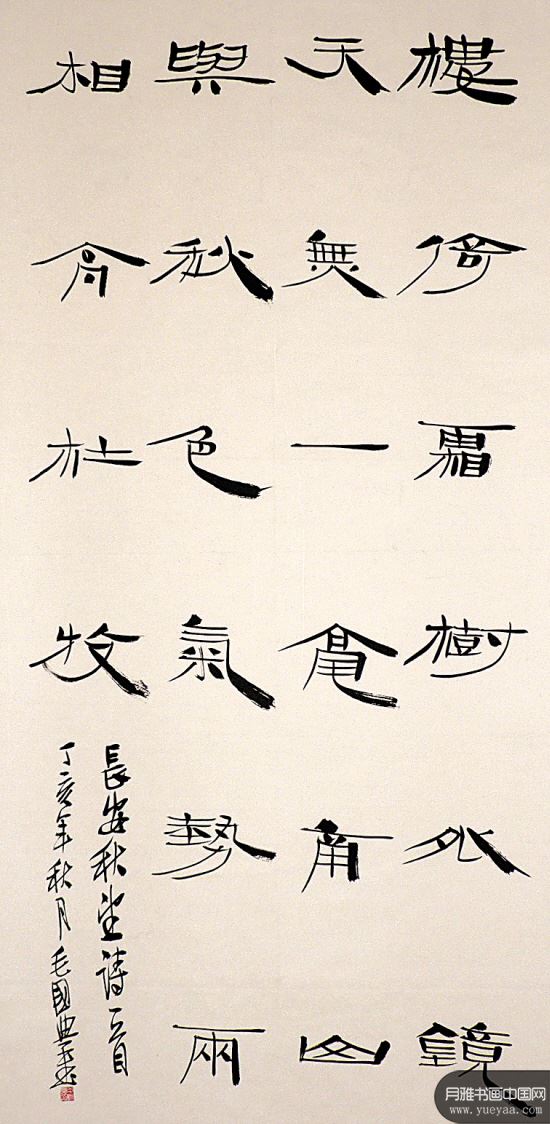 樓倚霜樹外鏡
天無一毫南山
與秋色氣勢兩
相高杜牧
長安秋望詩一首
丁亥年秋月毛國典書
月雅书画中国网
www.yueyaa.com